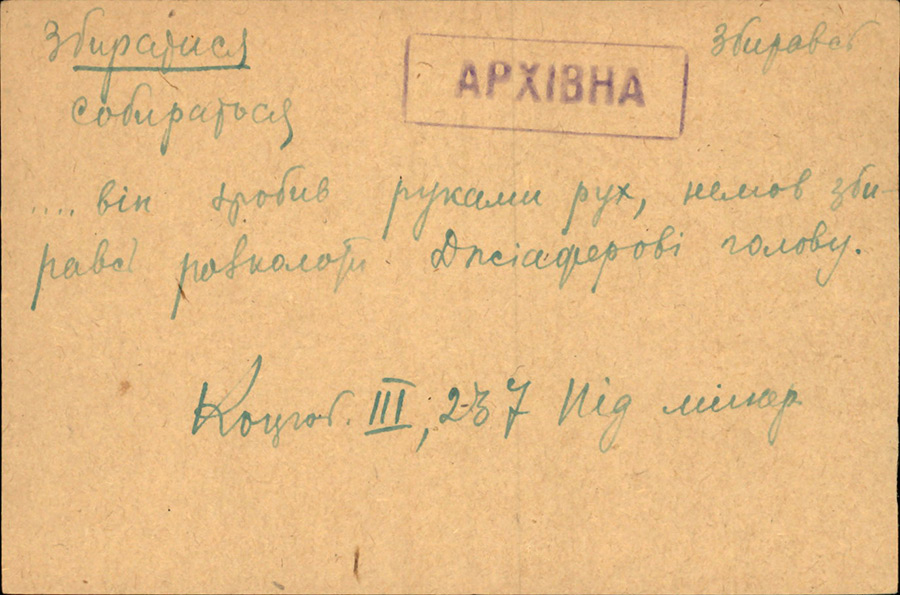 Збиратися
АРХІВНА
Збиравсь
собираться
.... він зробив руками рух, немов зби-
равсь розколоти Джіаферові голову.
Коцюб. III, 237 Під мінар